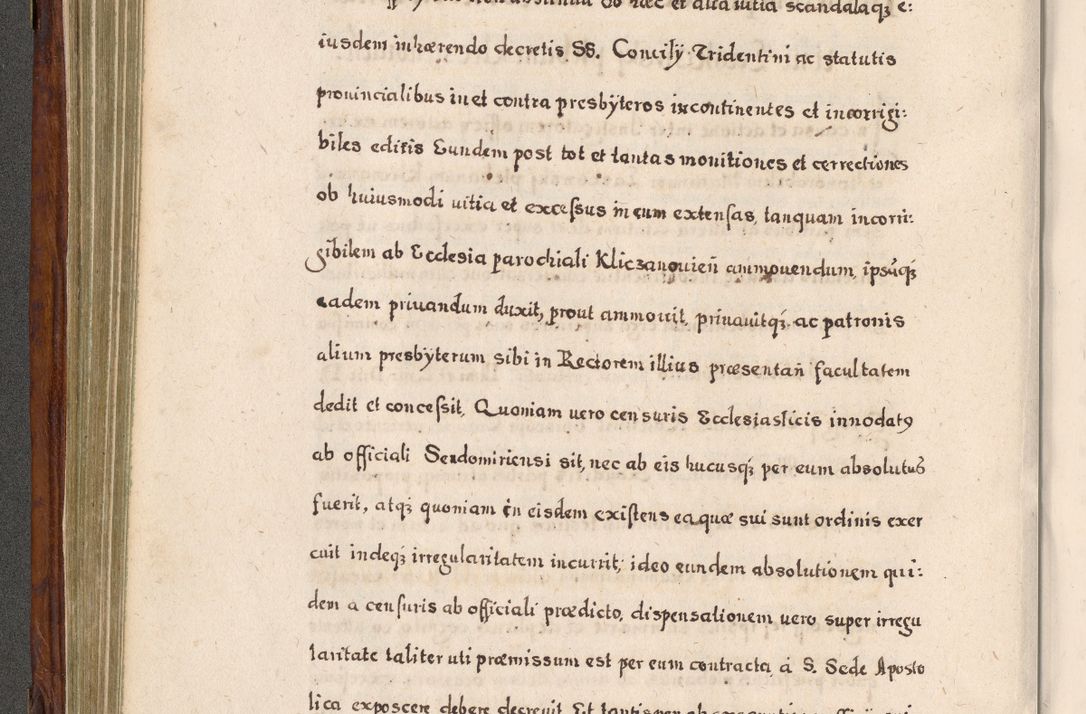 ob hæc et alia uitia scandalaq₃ e:
iusdem inhærendo decretis SS. Concilÿ Tridentini ac statutis
prouincialibus in et contra presbÿteros incontinentes et incorrigi:
biles editis Eundem post tot et tantas monitiones et correctiones
ob huiusmodi uitia et excessus in eum extensas, tanquam incorri:
gibilem ab Ecclesia parochiali Kliczanouień ammouendum, ipsaq₃
eadem priuandum duxit, prout ammouit, priuauitq₃, ac patronis
alium presbÿterum sibi in Rectorem illius præsentań facultatem
dedit et concessit, Quoniam uero censuris Ecclesiasticis innodatꝯ
ab officiali Sendomiriensi sit, nec ab eis hucusq₃ per eum absolutus
fuerit, atq₃ quoniam in eisdem existens ea quæ sui sunt ordinis exer
cuit indeq₃ irregularitatem incurrit, ideo eundem absolutionem qui:
dem a censuris ab officiali prædicto, dispensationem uero super irregu
laritate taliter uti præmissum est per eum contracta, á S. Sede Aposto
lica exposcere debere decreuit Et tantisper ab